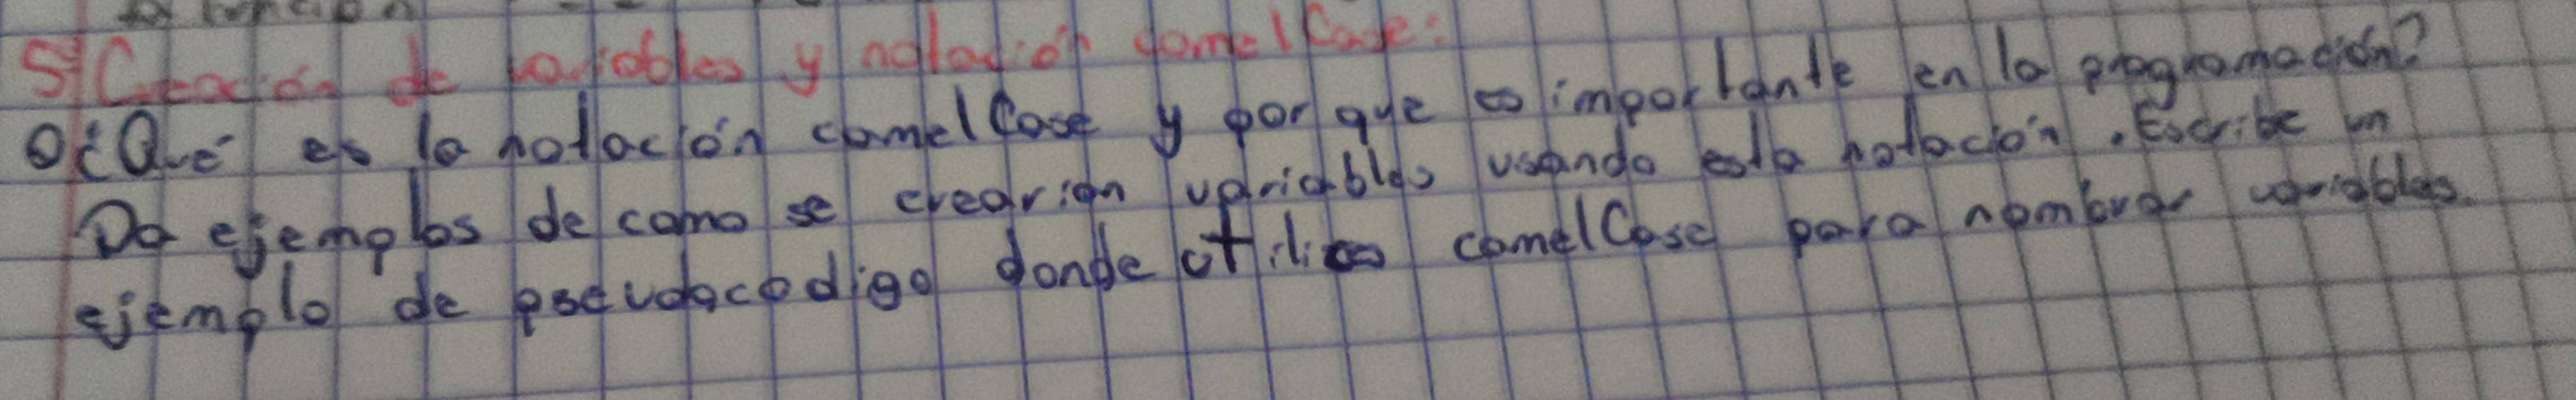 la función
5) Creación de variables y notación camelCase:
¿Qué es la notación camelCase y por que es importante en la programación?
Da ejemplos de como se crearian variables usando esta notación. Escribe un
ejemplo de pseudocodigo donde utilices camelCase para nombrar variables.